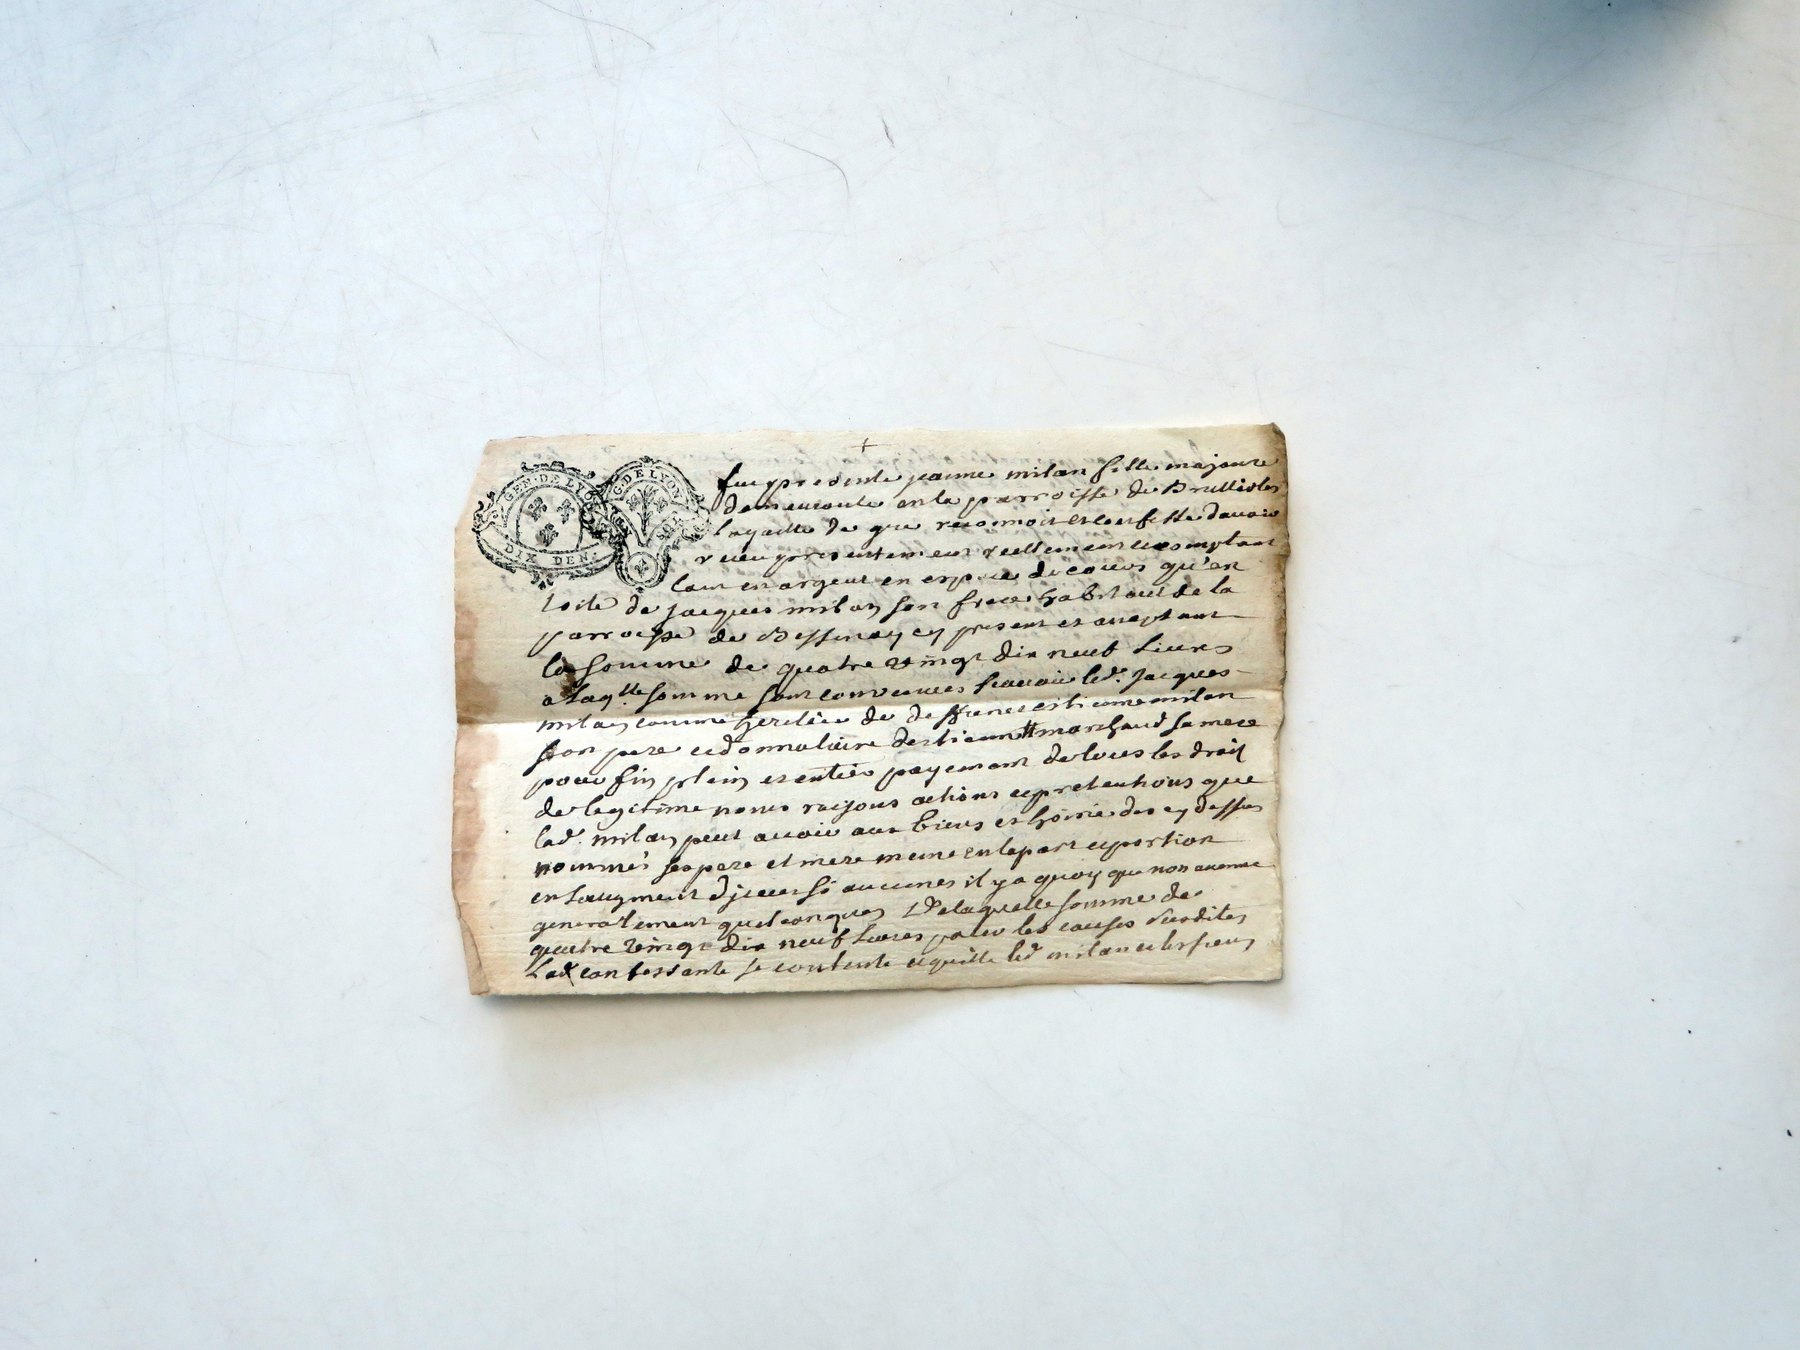 GEN · DE LYO
DIX DEN.
G · DE LYON
fut presente jeanne milan fille majeure
demeurante en la parroisse de Brullioles
laquelle de gre reconnoit et confesse davoir
receu presentement reellement et comptant
tant en argent en espece de cours qu'en
toile de jacques milan son frere habitant de la
parroisse de Bessenay cy present et acceptant
la somme de quatre vingt dix neuf livres
a laqlle somme sont convenues scavoir led. jacques
milan comme heritier de deffunct estienne milan
son pere et donnataire destiennette marchand sa mere
pour fin plein et entier payement de tous les droit
de legitime noms raisons actions et pretentions que
lad. milan peut avoir aux biens et hoirie des cy dessus
nommés ses pere et mere meme en la part et portion
en laugment d si aucunes il y a quoy que non avenue
generalement quelconques De laquelle somme de
quatre vingt dix neuf livres pour les causes susdites
Lad confessante se contente et quitte led milan et les siens